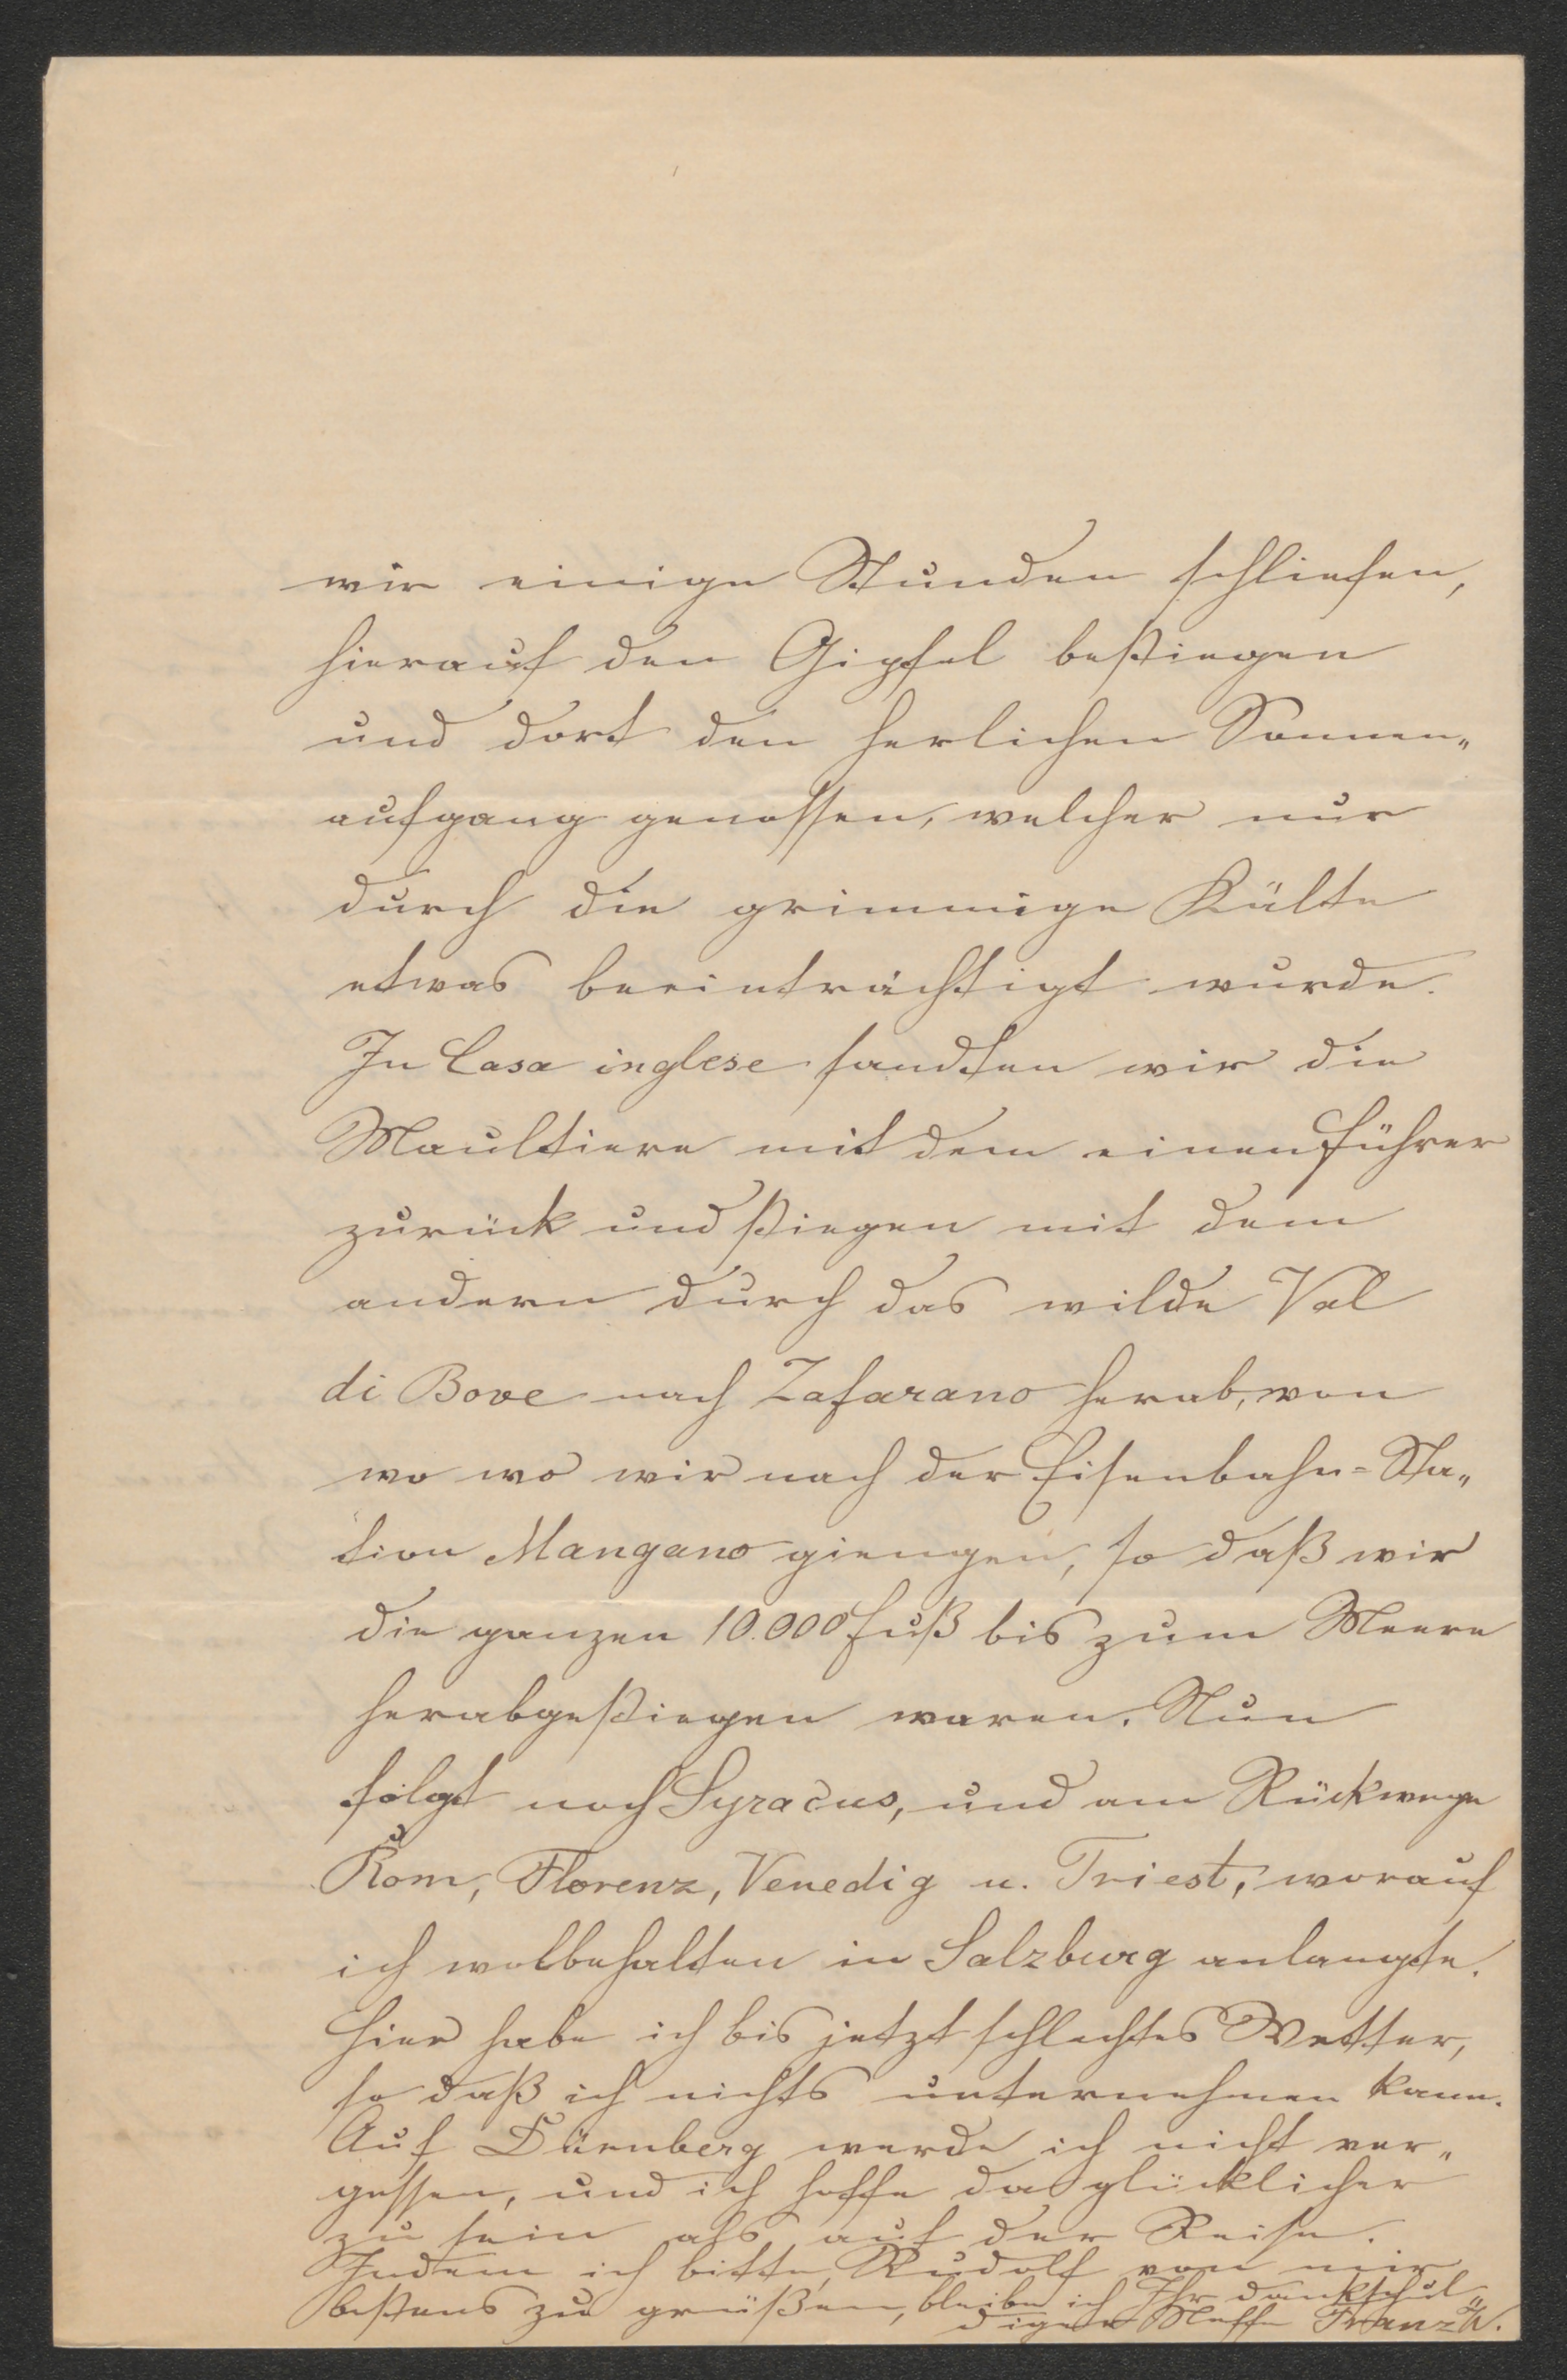 wir einige Stunden schliefen,
hierauf den Gipfel bestiegen
und dort den herlichen Sonnen„
aufgang genossen, welcher nur
durch die grimmige Kälte
etwas beeinträchtigt wurde.
In Casa inglese sandten wir die
Maultiere mit dem einen Führer
zurück und stiegen mit dem
andern durch das wilde Val
di Bove nach Zafarano herab, von
wo wo wir nach der Eisenbahn=Sta„
tion Mangano giengen, so daß wir
die ganzen 10.000 Fuß bis zum Meere
herabgestiegen waren. Nun
folgt noch Syracus, und am Rückwege
Rom, Florenz, Venedig u. Triest, worauf
ich wolbehalten in Salzburg anlangte.
Hier habe ich bis jetzt schlechtes Wetter,
so daß ich nichts unternehmen kann.
Auf Dürnberg werde ich nicht ver„
gessen, und ich hoffe da glücklicher
zu sein als auf der Reise.
Indem ich bitte, Rudolf von mir
bestens zu grüßen, bleibe ich Ihr dankschul„
diger Neffe Franz W.